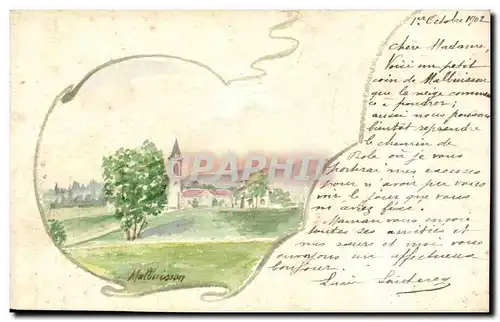 1er Octobre 1902
Chère Madame,
Voici un petit
coin de Malbuisson
que la neige commence
à poudrer;
aussi nous pensons
bientôt reprendre
le chemin de
Dole où je vous
porterai mes excuses
pour n'avoir pu vous
voir le jour que vous
avez fixé.
Maman vous envoie
toutes ses amitiés et
mes sœurs et moi vous
envoyons un affectueux
bonjour.
CPAPHIL
Malbuisson